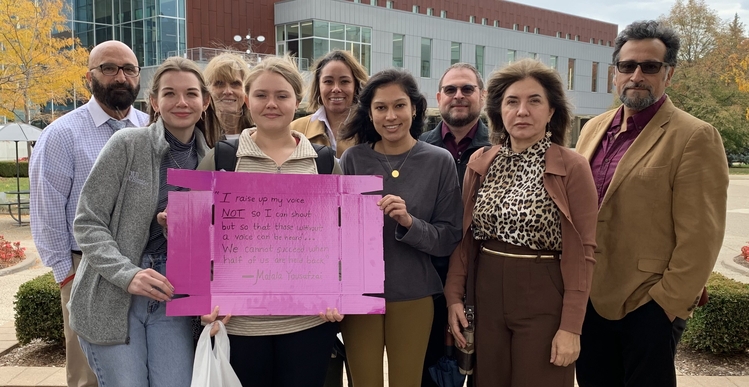 I raise up my voice
NOT so I can shout
but so that those without
a voice can be heard...
We cannot succeed when
half of us are held back.
— Malala Yousafzai